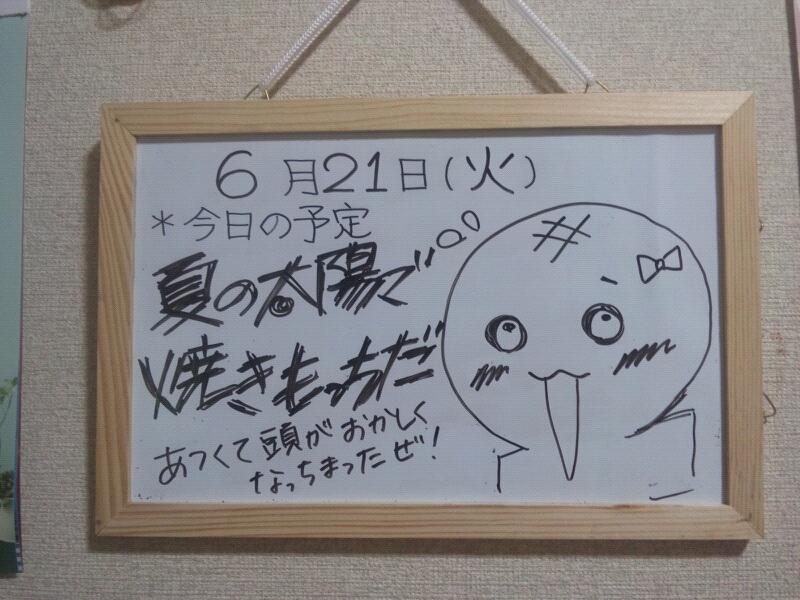 6月21日(火)
*今日の予定
夏の太陽で
焼きもっちだ
あつくて頭がおかしく
なっちまったぜ!